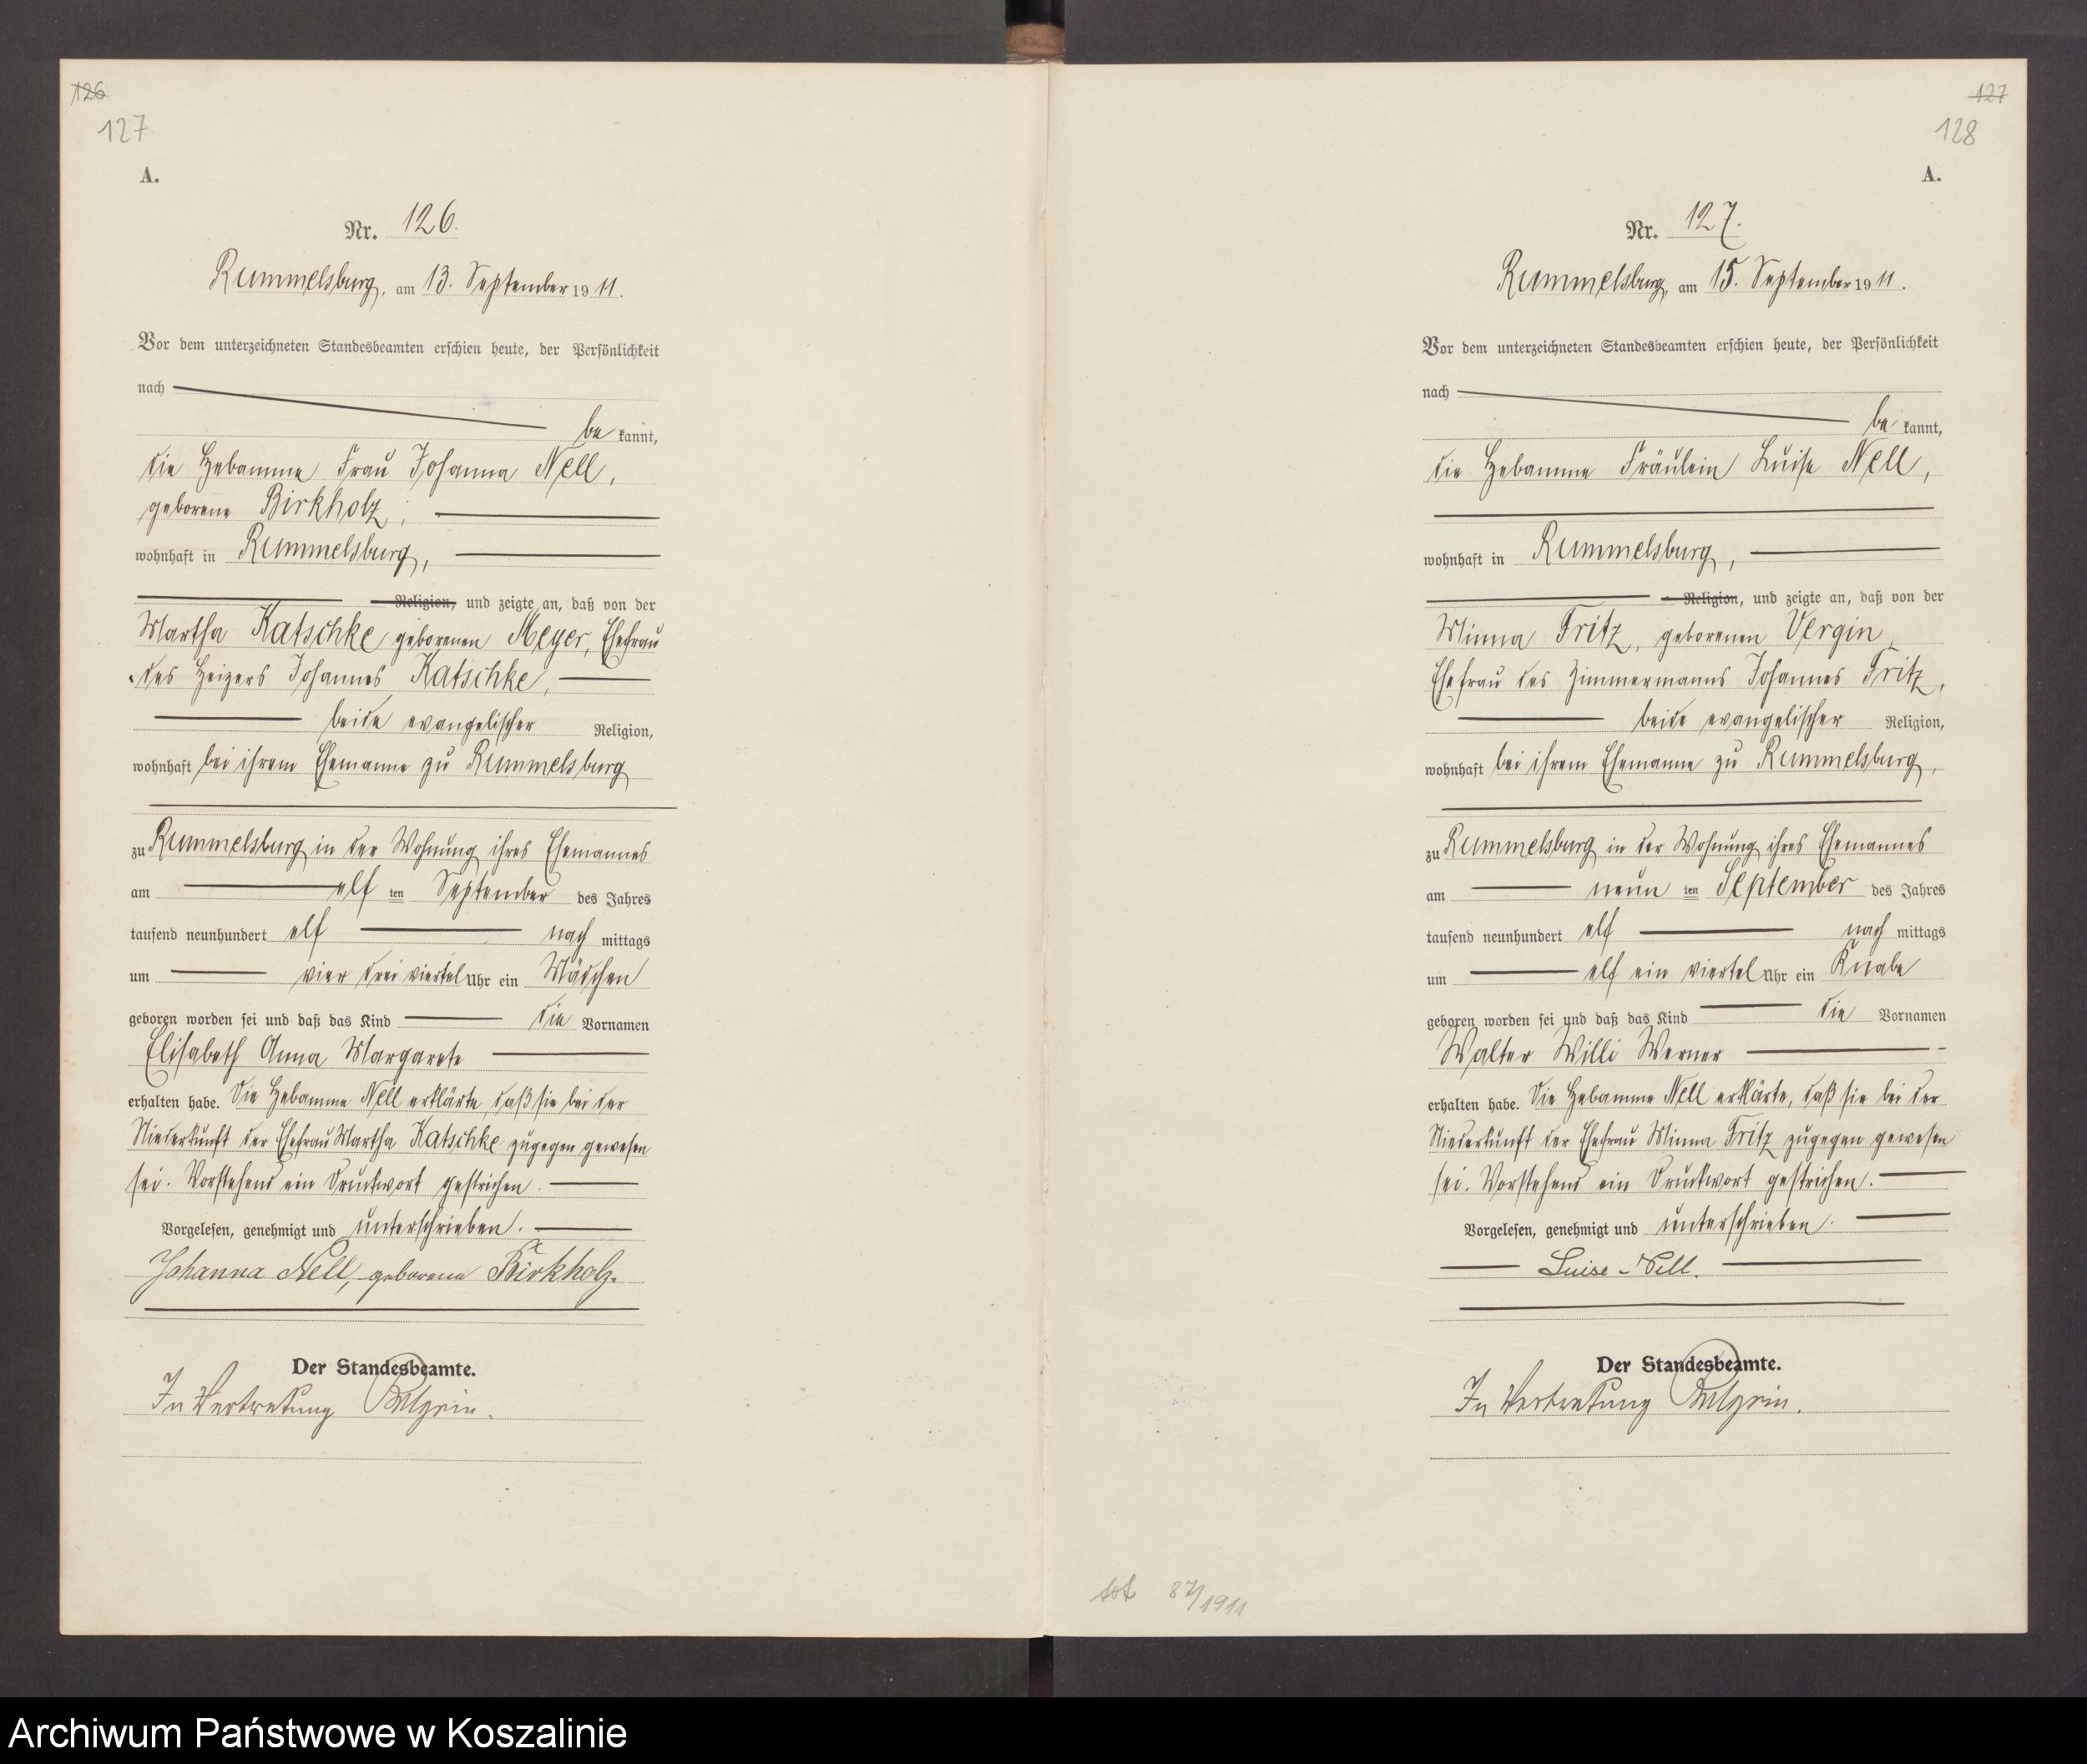 126
127
A.
Nr. 126.
Rummelsburg, am 13. September 1911.
Vor dem unterzeichneten Standesbeamten erschien heute, der Persönlichkeit
nach
be kannt,
die Hebamme Frau Johanna Nell,
geborene Birkholz,
wohnhaft in Rummelsburg,
Religion, und zeigte an, daß von der
Martha Katschke geborenen Meyer, Ehefrau
des Heizers Johannes Katschke,
beide evangelischer Religion,
wohnhaft bei ihrem Ehemanne zu Rummelsburg
zu Rummelsburg in der Wohnung ihres Ehemannes
am elf ten September des Jahres
tausend neunhundert elf nach mittags
um vier drei viertel Uhr ein Mädchen
geboren worden sei und daß das Kind die Vornamen
Elisabeth Anna Margarete
erhalten habe. Die Hebamme Nell erklärte, daß sie bei der
Niederkunft der Ehefrau Martha Katschke zugegen gewesen
sei. Vorstehend ein Druckwort gestrichen.
Vorgelesen, genehmigt und unterschrieben.
Johanna Nell, geborene Birkholz.
Der Standesbeamte.
In Vertretung
127
128
A.
Nr. 127.
Rummelsburg, am 15. September 1911.
Vor dem unterzeichneten Standesbeamten erschien heute, der Persönlichkeit
nach
be kannt,
die Hebamme Fräulein Luise Nell,
wohnhaft in Rummelsburg,
Religion, und zeigte an, daß von der
Minna Fritz, geborenen Vergin,
Ehefrau des Zimmermanns Johannes Fritz,
beide evangelischer Religion,
wohnhaft bei ihrem Ehemanne zu Rummelsburg,
zu Rummelsburg in der Wohnung ihres Ehemannes
am neun ten September des Jahres
tausend neunhundert elf nach mittags
um elf ein viertel Uhr ein Knabe
geboren worden sei und daß das Kind die Vornamen
Walter Willi Werner
erhalten habe. Die Hebamme Nell erklärte, daß sie bei der
Niederkunft der Ehefrau Minna Fritz zugegen gewesen
sei. Vorstehend ein Druckwort gestrichen.
Vorgelesen, genehmigt und unterschrieben.
Luise Nell.
Der Standesbeamte.
In Vertretung
tot 87/1911
Archiwum Państwowe w Koszalinie